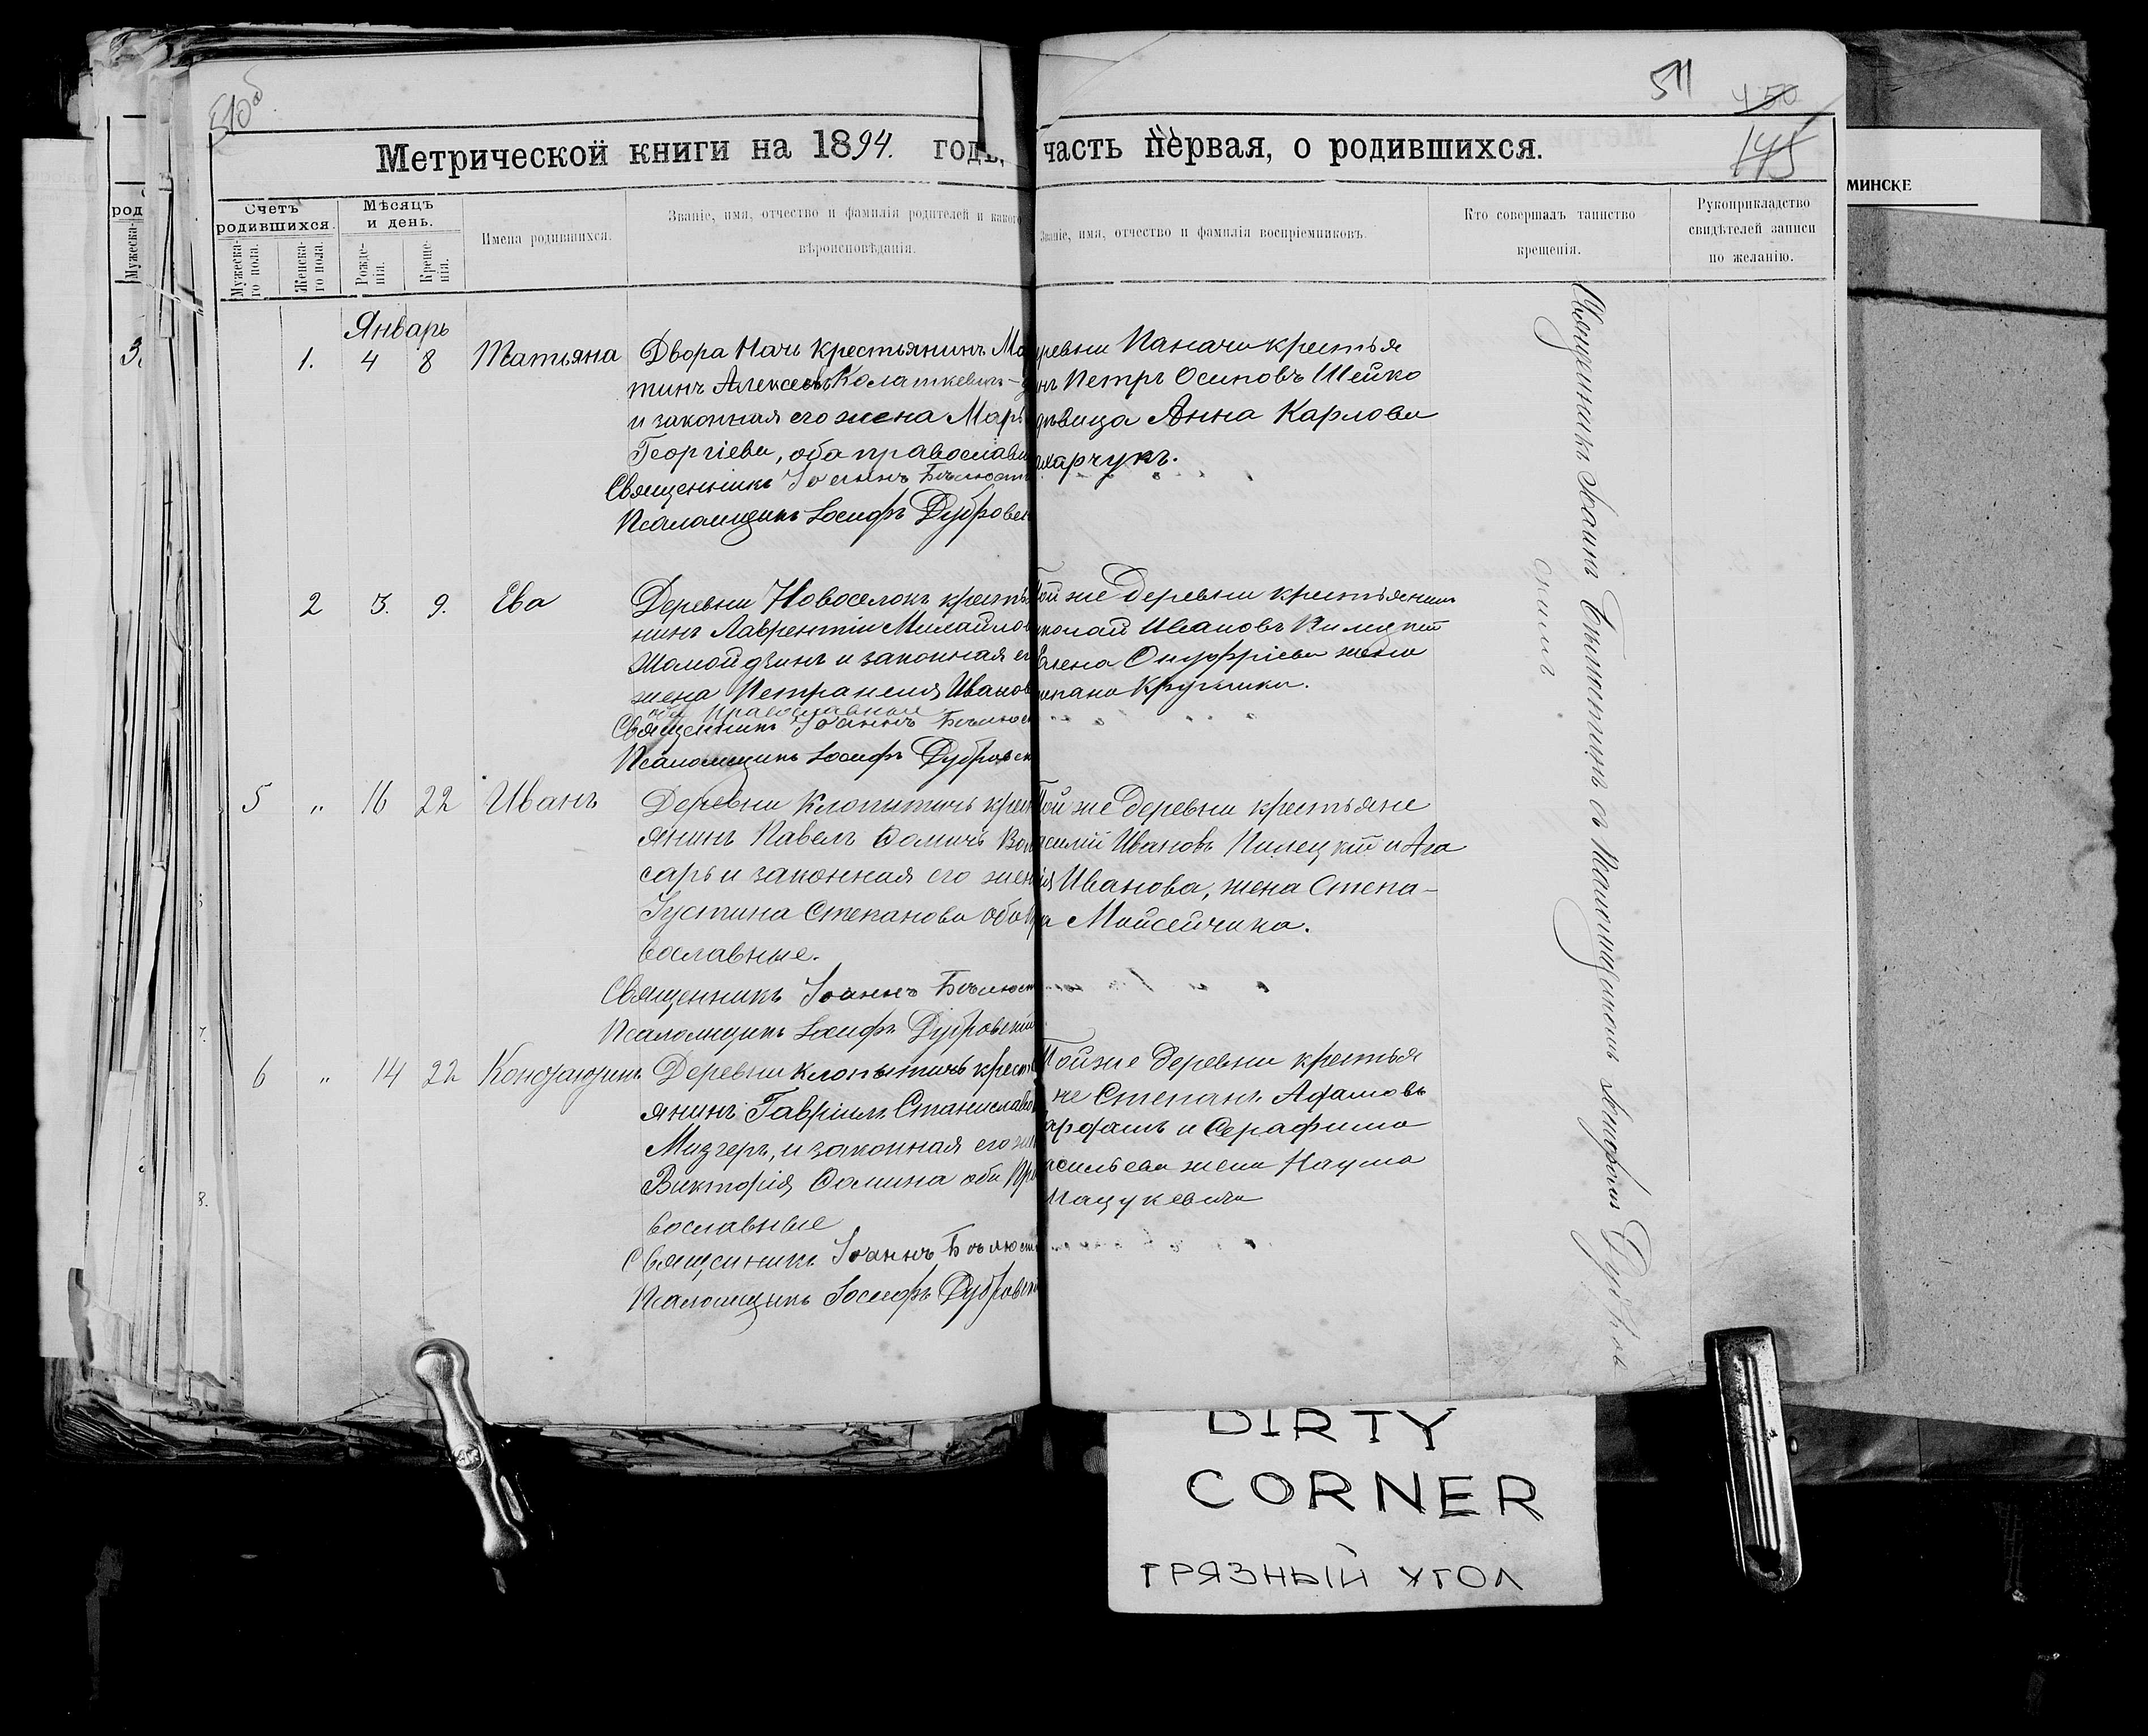 510об
511
450
145
Метрической книги на 1894. годъ, часть первая, о родившихся.
МИНСКЕ
род
Мужеска-
3.
Счетъ родившихся.
Мужеска-го пола.
Женска-го пола.
Мѣсяцъ и день.
Рожде-нія.
Креще-нія.
Имена родившихся.
Званіе, имя, отчество и фамилія родителей и какого
вѣроисповѣданія.
Званіе, имя, отчество и фамилія воспріемниковъ.
Кто совершалъ таинство
крещенія.
Рукоприкладство
свидѣтелей записи
по желанію.
Январь
1. 4 8 Татьяна
Двора Начь Крестьянинъ Ма
тинъ Алексеевъ Колаткевичъ
и законная его жена Марі
Георгіева, оба православн
Священникъ Іоаннъ Бѣлюст
Псаломщикъ Іосифъ Дубровск
ревни Паначи крестья
нъ Петръ Осиповъ Шейко
дѣвица Анна Карлова
марчукъ.
2 3. 9. Ева
Деревни Новоселокъ кресть
нинъ Лаврентій Михайлов
Жамойдзинъ и законная ег
жена Петранеля Иванов
оба православные
Священникъ Іоаннъ Бѣлюст
Псаломщикъ Іосифъ Дубровск
Той же деревни крестьянинъ
иколай Ивановъ Пилецкій
Елена Онуфріева жена
тепана Кругликa.
5 " 16 22 Иванъ
Деревни Клопытичъ крест
янинъ Павелъ Ѳомичъ Вол
саръ и законная его жен
Іустина Степанова оба Пра
вославные.
Священникъ Іоаннъ Бѣлюст
Псаломщикъ Іосифъ Дубровскій
Той же деревни крестьяне
асилій Ивановъ Пилецкій и Ага
ія Иванова, жена Степа-
на Мойсейчика.
6 " 14 22
Деревни Клопытичъ крест
янинъ Гавріилъ Станиславов
Мизгеръ, и законная его же
Викторія Ѳомина оба Пра
вославные
Священникъ Іоаннъ Бѣлюст
Псаломщикъ Іосифъ Дубровскій
Той же деревни крестья
не Степанъ Адамовъ
и Серафима
асильева жена Наума
Мацукевича
Священникъ Іоаннъ Бѣлюстинъ съ Псаломщикомъ Іосифомъ Дубров
скимъ
7.
8.
DIRTY
CORNER
ГРЯЗНЫЙ УГОЛ